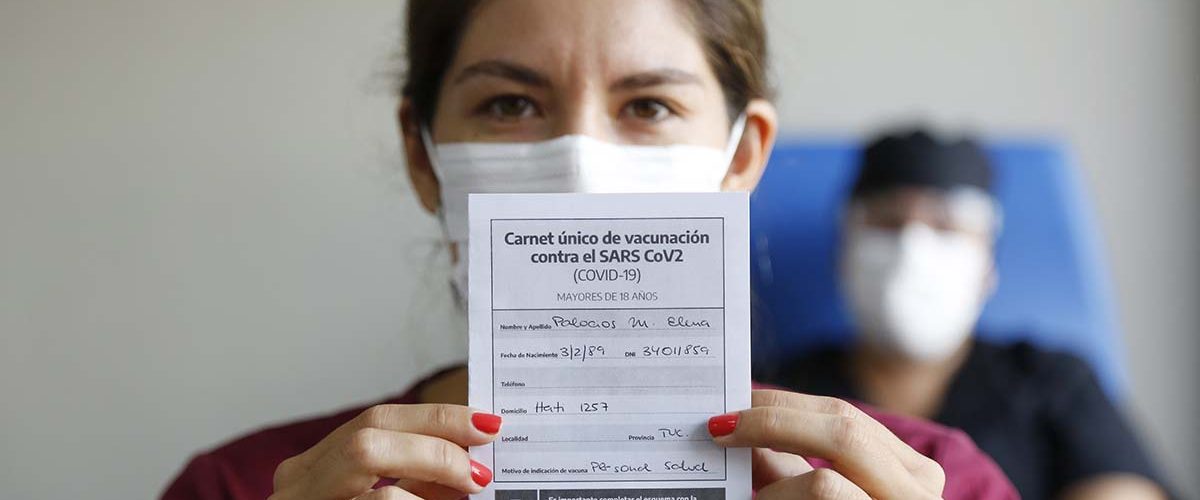 Carnet único de vacunación
contra el SARS CoV2
(COVID-19)
MAYORES DE 18 AÑOS
Nombre y Apellido Palacios M. Elena
Fecha de Nacimiento 3/2/89 DNI 34011859
Teléfono
Domicilio Haiti 1257
Localidad Provincia TUC.
Motivo de indicación de vacuna Personal Salud
Es importante completar el esquema con la